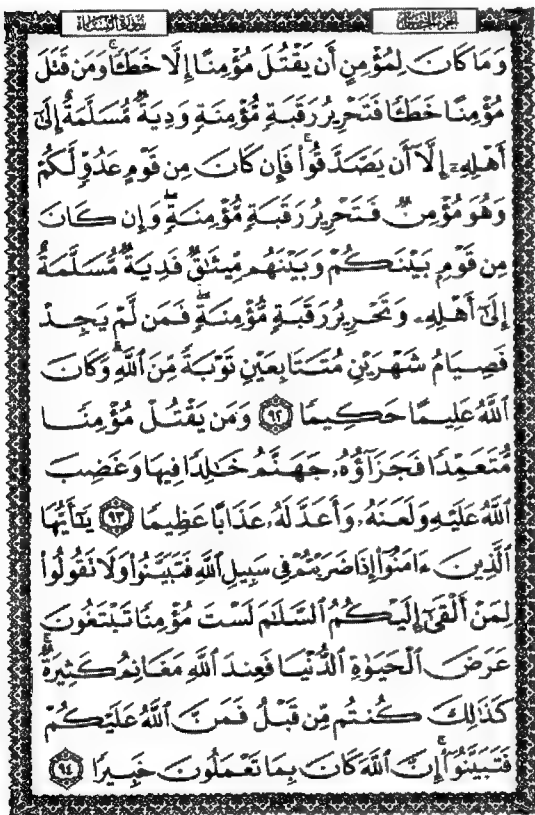 الجزء الخامس
سورة النساء
وَمَا كَانَ لِمُؤْمِنٍ أَن يَقْتُلَ مُؤْمِنًا إِلَّا خَطَـًٔا ۚ وَمَن قَتَلَ
مُؤْمِنًا خَطَـًٔا فَتَحْرِيرُ رَقَبَةٍ مُّؤْمِنَةٍ وَدِيَةٌ مُّسَلَّمَةٌ إِلَىٰٓ
أَهْلِهِۦٓ إِلَّآ أَن يَصَّدَّقُوا۟ ۚ فَإِن كَانَ مِن قَوْمٍ عَدُوٍّ لَّكُمْ
وَهُوَ مُؤْمِنٌ فَتَحْرِيرُ رَقَبَةٍ مُّؤْمِنَةٍ ۖ وَإِن كَانَ
مِن قَوْمٍۭ بَيْنَكُمْ وَبَيْنَهُم مِّيثَـٰقٌ فَدِيَةٌ مُّسَلَّمَةٌ
إِلَىٰٓ أَهْلِهِۦ وَتَحْرِيرُ رَقَبَةٍ مُّؤْمِنَةٍ ۖ فَمَن لَّمْ يَجِدْ
فَصِيَامُ شَهْرَيْنِ مُتَتَابِعَيْنِ تَوْبَةً مِّنَ ٱللَّهِ ۗ وَكَانَ
ٱللَّهُ عَلِيمًا حَكِيمًا ٩٢ وَمَن يَقْتُلْ مُؤْمِنًا
مُّتَعَمِّدًا فَجَزَآؤُهُۥ جَهَنَّمُ خَـٰلِدًا فِيهَا وَغَضِبَ
ٱللَّهُ عَلَيْهِ وَلَعَنَهُۥ وَأَعَدَّ لَهُۥ عَذَابًا عَظِيمًا ٩٣ يَـٰٓأَيُّهَا
ٱلَّذِينَ ءَامَنُوٓا۟ إِذَا ضَرَبْتُمْ فِى سَبِيلِ ٱللَّهِ فَتَبَيَّنُوا۟ وَلَا تَقُولُوا۟
لِمَنْ أَلْقَىٰٓ إِلَيْكُمُ ٱلسَّلَـٰمَ لَسْتَ مُؤْمِنًا تَبْتَغُونَ
عَرَضَ ٱلْحَيَوٰةِ ٱلدُّنْيَا فَعِندَ ٱللَّهِ مَغَانِمُ كَثِيرَةٌ ۚ
كَذَٰلِكَ كُنتُم مِّن قَبْلُ فَمَنَّ ٱللَّهُ عَلَيْكُمْ
فَتَبَيَّنُوٓا۟ ۚ إِنَّ ٱللَّهَ كَانَ بِمَا تَعْمَلُونَ خَبِيرًا ٩٤